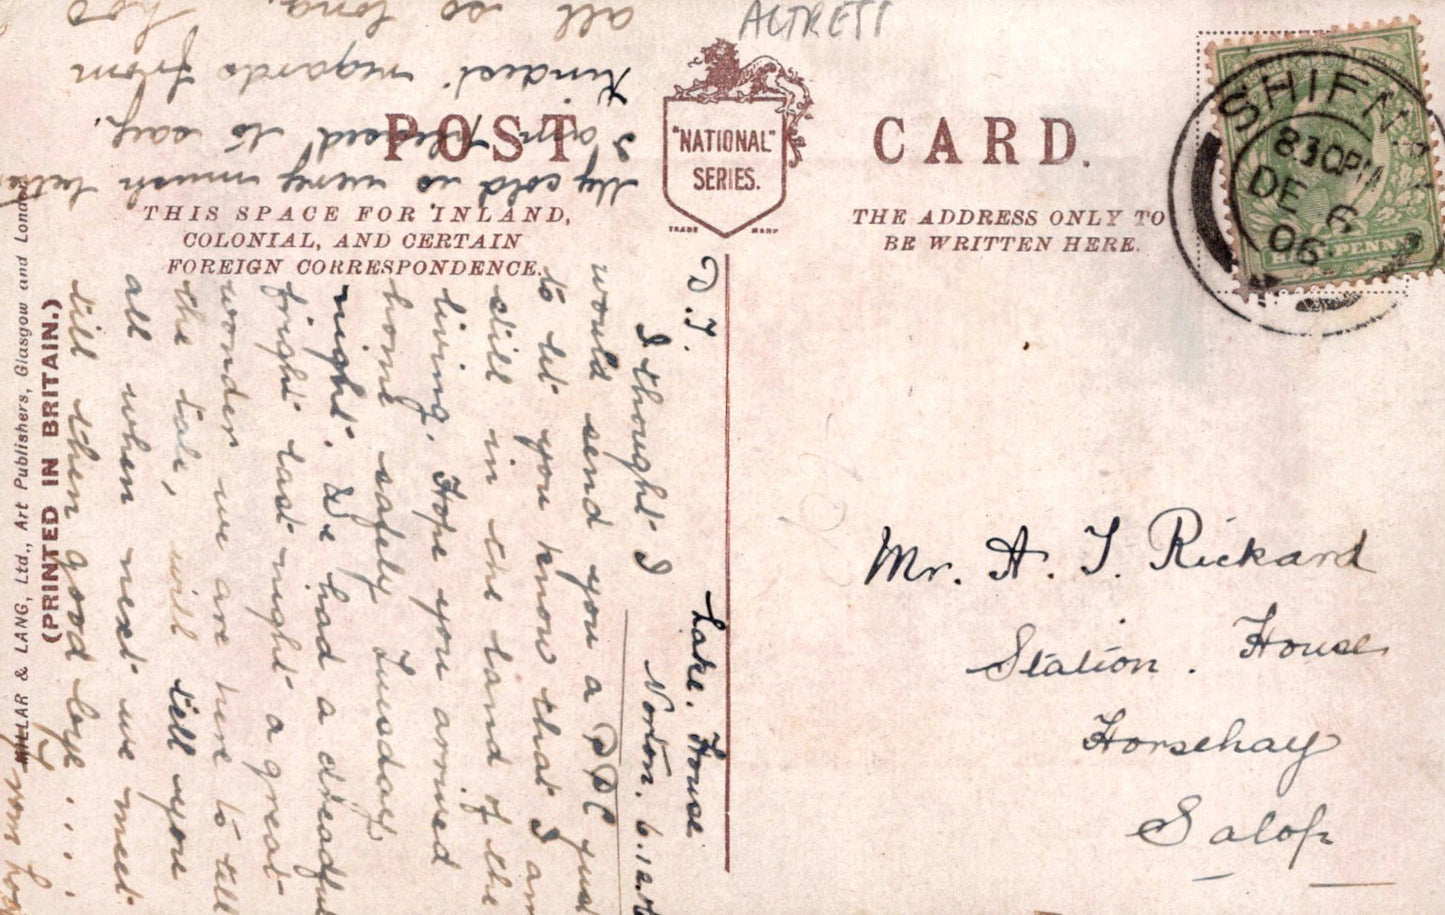 ALTRETT
POST CARD.
"NATIONAL"
SERIES.
TRADE MARK
THIS SPACE FOR INLAND,
COLONIAL, AND CERTAIN
FOREIGN CORRESPONDENCE.
THE ADDRESS ONLY TO
BE WRITTEN HERE.
SHIFN
830PM
DE 6
06
HALFPENNY
Mr. A. T. Rickard
Station. House
Horsehay
Salop
Lake. House.
Norton. 6.12.06
D. T.
I thought I
would send you a PPC just
to let you know that I am
still in the land of the
living. Hope you arrived
home safely Tuesday
night. We had a dreadful
fright last night a great
wonder we are here to tell
the tale, will tell you
all when next we meet
till then good bye....
My cold is very much better
I am pleased to say.
Kindest regards from
all so long.
MILLAR & LANG, Ltd., Art Publishers, Glasgow and London
(PRINTED IN BRITAIN.)